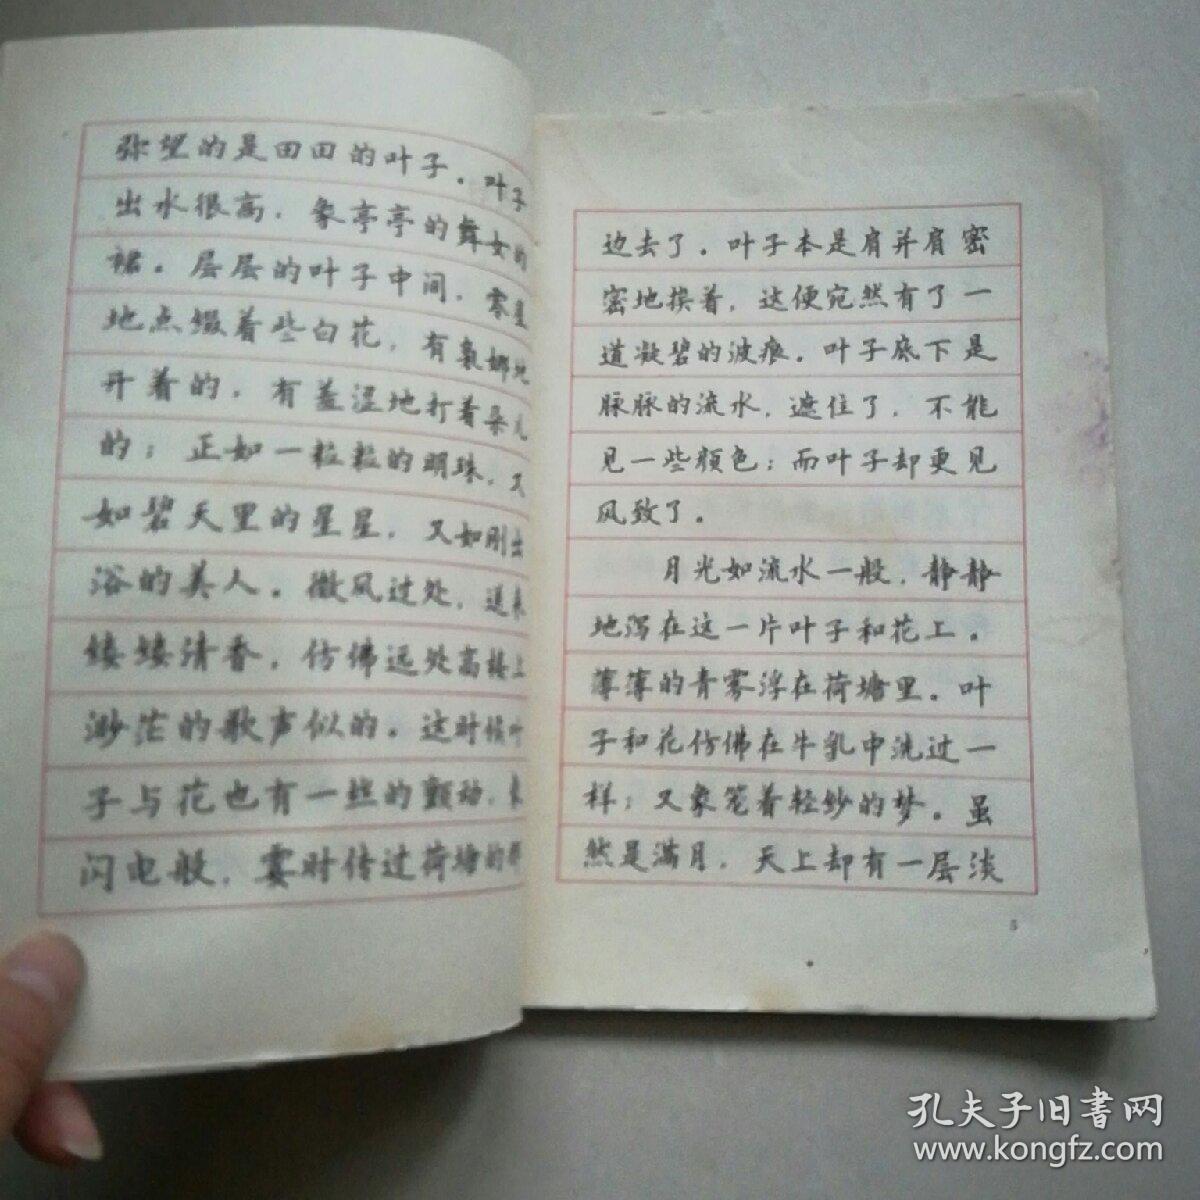 弥望的是田田的叶子。叶子
出水很高，象亭亭的舞女的
裙。层层的叶子中间，零星
地点缀着些白花，有袅娜地
开着的，有羞涩地打着朵儿
的；正如一粒粒的明珠，又
如碧天里的星星，又如刚出
浴的美人。微风过处，送来
缕缕清香，仿佛远处高楼上
渺茫的歌声似的。这时候叶
子与花也有一丝的颤动，象
闪电般，霎时传过荷塘的那
边去了。叶子本是肩并肩密
密地挨着，这便宛然有了一
道凝碧的波痕。叶子底下是
脉脉的流水，遮住了，不能
见一些颜色；而叶子却更见
风致了。
月光如流水一般，静静
地泻在这一片叶子和花上。
薄薄的青雾浮在荷塘里。叶
子和花仿佛在牛乳中洗过一
样；又象笼着轻纱的梦。虽
然是满月，天上却有一层淡
5
孔夫子旧书网
www.kongfz.com